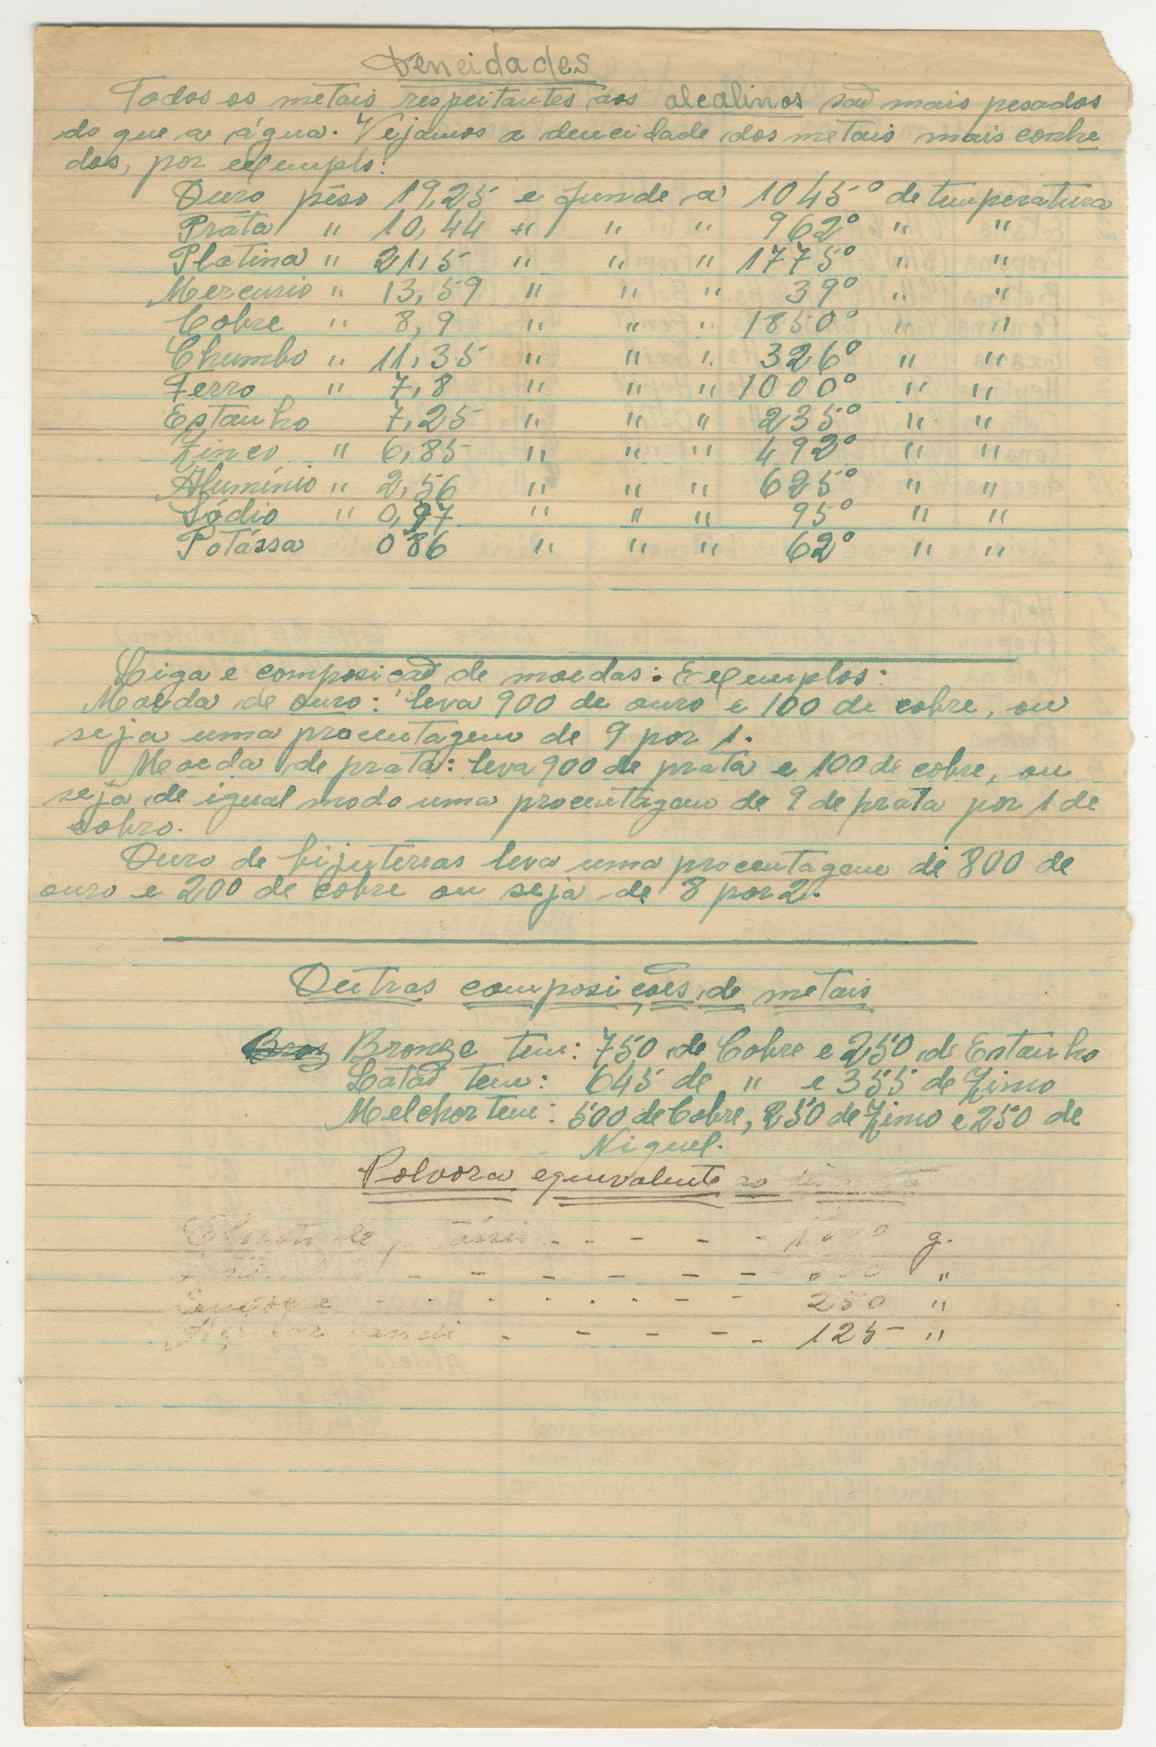 Dencidades
Todos os metais respeitantes aos alcalinos saõ mais pesados
do que a água. Vejamos a dencidade dos metais mais conhe
dos, por exemplo:
Ouro pêso 19,25 e funde a 1045° de temperatura
Prata " 10,44 " " " 962° " "
Platina " 21,5 " " " 1775° " "
Mercurio " 13,59 " " " 39° " "
Cobre " 8,9 " " " 1850° " "
Chumbo " 11,35 " " " 326° " "
Ferro " 7,8 " " " 1000° " "
Estanho 7,25 " " " 235° " "
Zinco " 6,85 " " " 492° " "
Alumínio " 2,56 " " " 625° " "
Sódio " 0,97 " " " 95° " "
Potássa 0'86 " " " 62° " "
Liga e composicaõ de moedas: Exemplos:
Moeda de ouro: leva 900 de ouro e 100 de cobre, ou
seja uma procentagem de 9 por 1.
Moeda de prata: leva 900 de prata e 100 de cobre, ou
seja de igual modo uma procentagem de 9 de prata por 1 de
cobro.
Ouro de bijuterias leva uma procentagem de 800 de
ouro e 200 de cobre ou seja de 8 por 2.
Outras composições de metais
Bronze tem: 750 de Cobre e 250 de Estanho
Lataõ tem: 645 de " e 355 de Zinco
Melchor tem: 500 de Cobre, 250 de Zinco e 250 de
Niquel.
Polvora equivalente ao
de - - - - - g.
- - - - - - - "
- - - - - - - - 250 "
- - - - - 125 "